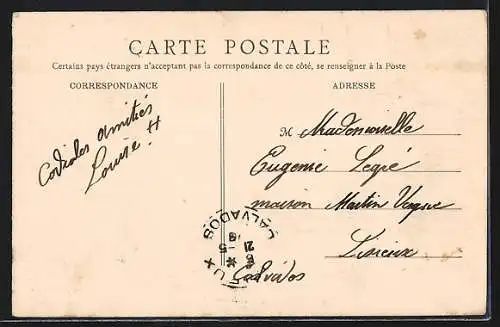 CARTE POSTALE
Certains pays étrangers n'acceptant pas la correspondance de ce côté, se renseigner à la Poste
CORRESPONDANCE
ADRESSE
Cordiales amitiés
Louise H
M Mademoiselle
Eugenie Legré
maison Martin
Lisieux
Calvados
CALVADOS